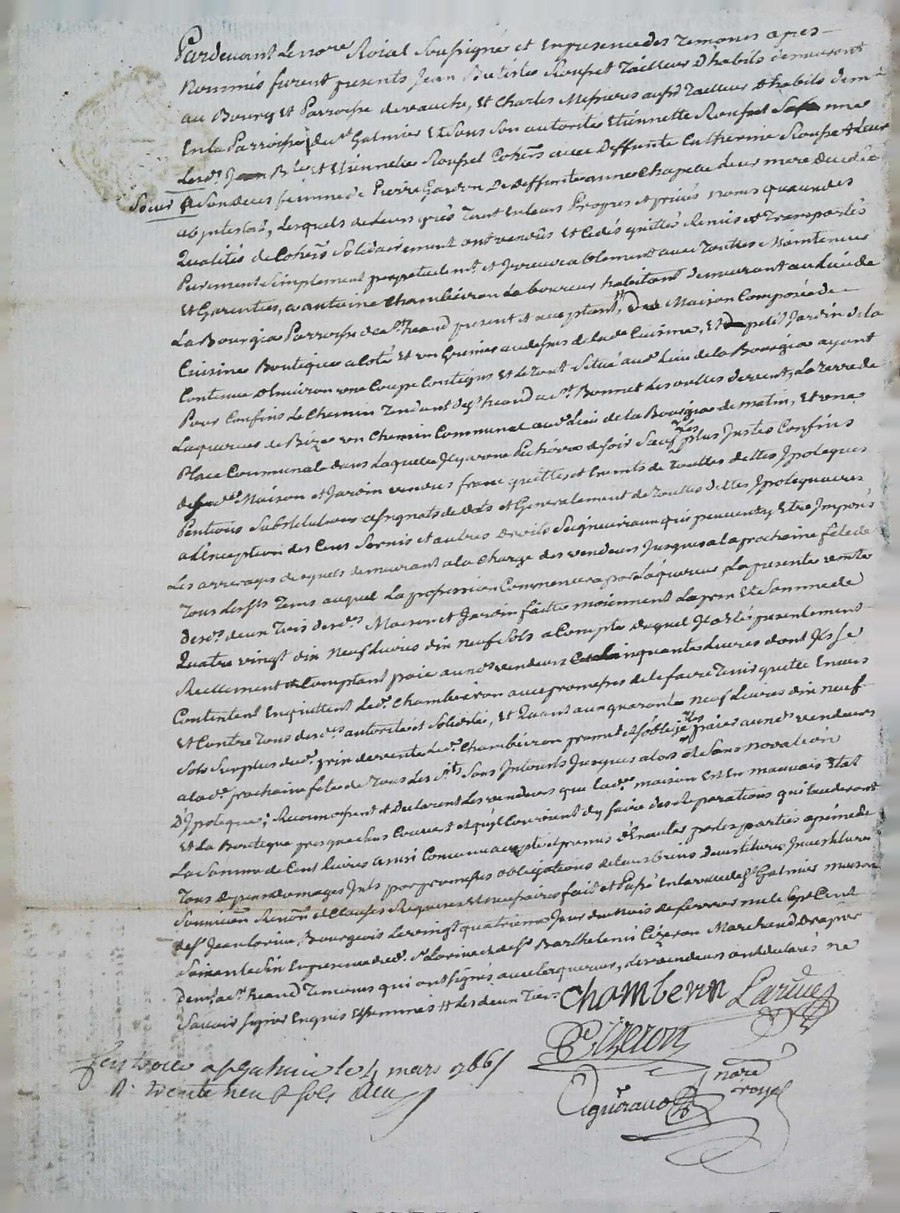 Pardevant Le no.re Roial Soussigné et En presence des Temoins apres
Nommés furent presents Jean Batiste Rousset Tailleur D'habits demeurant
au Bourg Et Parroisse de veauche, Et Charles Mesnieres aussy Tailleur D'habits dem.t
En la Parroisse de S.t Galmier Et Sous Son autorité Etiennette Rousset Sa femme
Lesd. Jean B.te et Etiennette Rousset Coher.s avec Deffunte Catherine Rousset Leur
Soeur femme de Pierre Gardon De deffunte anne Chapelle Leur mere decedée
abintestat, Lesquels de Leurs grés Tant En leurs Propres et privés noms qu'aux des
Qualités de Coher.s Solidairement ont vendus Et Cédés quittés Remis et Transportés
Purement Simplement perpetuelem.t et Irrevocablement avec Touttes Maintenues
Et Garenties, a antoine Chambeiron Laboureur habitant demeurant au Lieu de
La Bourgia Parroisse de S.t heand present et acceptant, Maison Composée de
Cuisine Boutique a Coté Et un Grenier au dessus de lad. Cuisine, Et petit Jardin de la
Contenue d'Environ une Coupe Contigus Et le Tout Situé aud. Lieu de la Bourgia ayant
Pour Confins Le Chemin Tendant de S.t heand a S.t Bonnet Les oulles de vent, La Terre de
Laquereur de Bize un Chemin Communal aud. Lieu de la Bourgia de matin, Et une
Place Communale dans Laquelle Il y a une de Soir Sauf plus Justes Confins
Maison et Jardin vendus franc quittes et Exempts de Touttes dettes Ipoteques
Pentions Substitutions assignats de dots et Generalement de Touttes dettes Ipotequaires
a L'exception des Cens Servis et autres Droits Seigneuriaux qui peuvent y Etre Imposés
Les arrerages desquels demeurant a la Charge des vendeurs Jusques a la prochaine fete de
Tous Les S.ts Tems auquel La possession Commencera pour L'aquereur, La presente vente
Maison et Jardin faitte moienment Le prix Et Somme de
Quatre vingt dix Neuf Livres dix neuf Sols a Compte duquel Il a Eté presentement
Reellement et Comptant paié auxd. vendeurs Cinquante Livres dont Ils Se
Contentent En quittent Led. Chambeiron avec promesses de Le faire Tenir quitte Envers
Et Contre Tous autorité et Solidité, Et Quant aux quarante neuf Livres dix neuf
Sols Surplus dud. prix de vente Led. Chambeiron promet et S'oblige paier auxd. vendeurs
a lad. prochaine fete de Tous Les S.ts Sans Interets Jusques alors et Sans novation
D'Ipoteque; Reconnoissent et Declarent Les vendeurs que Lad. maison Est En mauvais Etat
Et La Boutique presque Sans Couvert et qu'il Convient d'y faire des Reparations qui Couteront
La Somme de Cent Livres ainsi Convenu accepté et promis d'Executer par les parties a peine de
Tous Depens Domages Int.ts par promesses obligations de leurs Biens
Soumission Renon.on et Clauses Requises et necessaires fait et Passé En la ville de S.t Galmier maison
de S.r Jean Bourgeois Le vingt quatrieme Jour du mois de fevrier mil Sept Cent
Soixante Six En presence dud. S.r et de S.r Barthelemi Cizeron Marchand Drapier
S.t heand Temoins qui ont Signés avec L'aquereur, Les vendeurs ont declarés ne
Savoir Signer Enquis Et Sommés
Chamberon
Cizeron
notre
royal
a S.t Galmier le 4 mars 1766
R. trente neuf sols